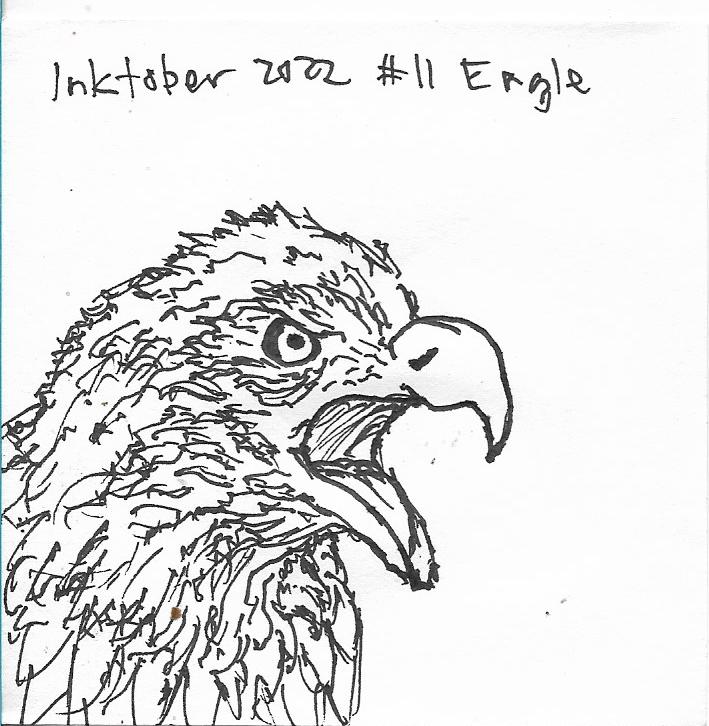 Inktober 2022 #11 Eagle